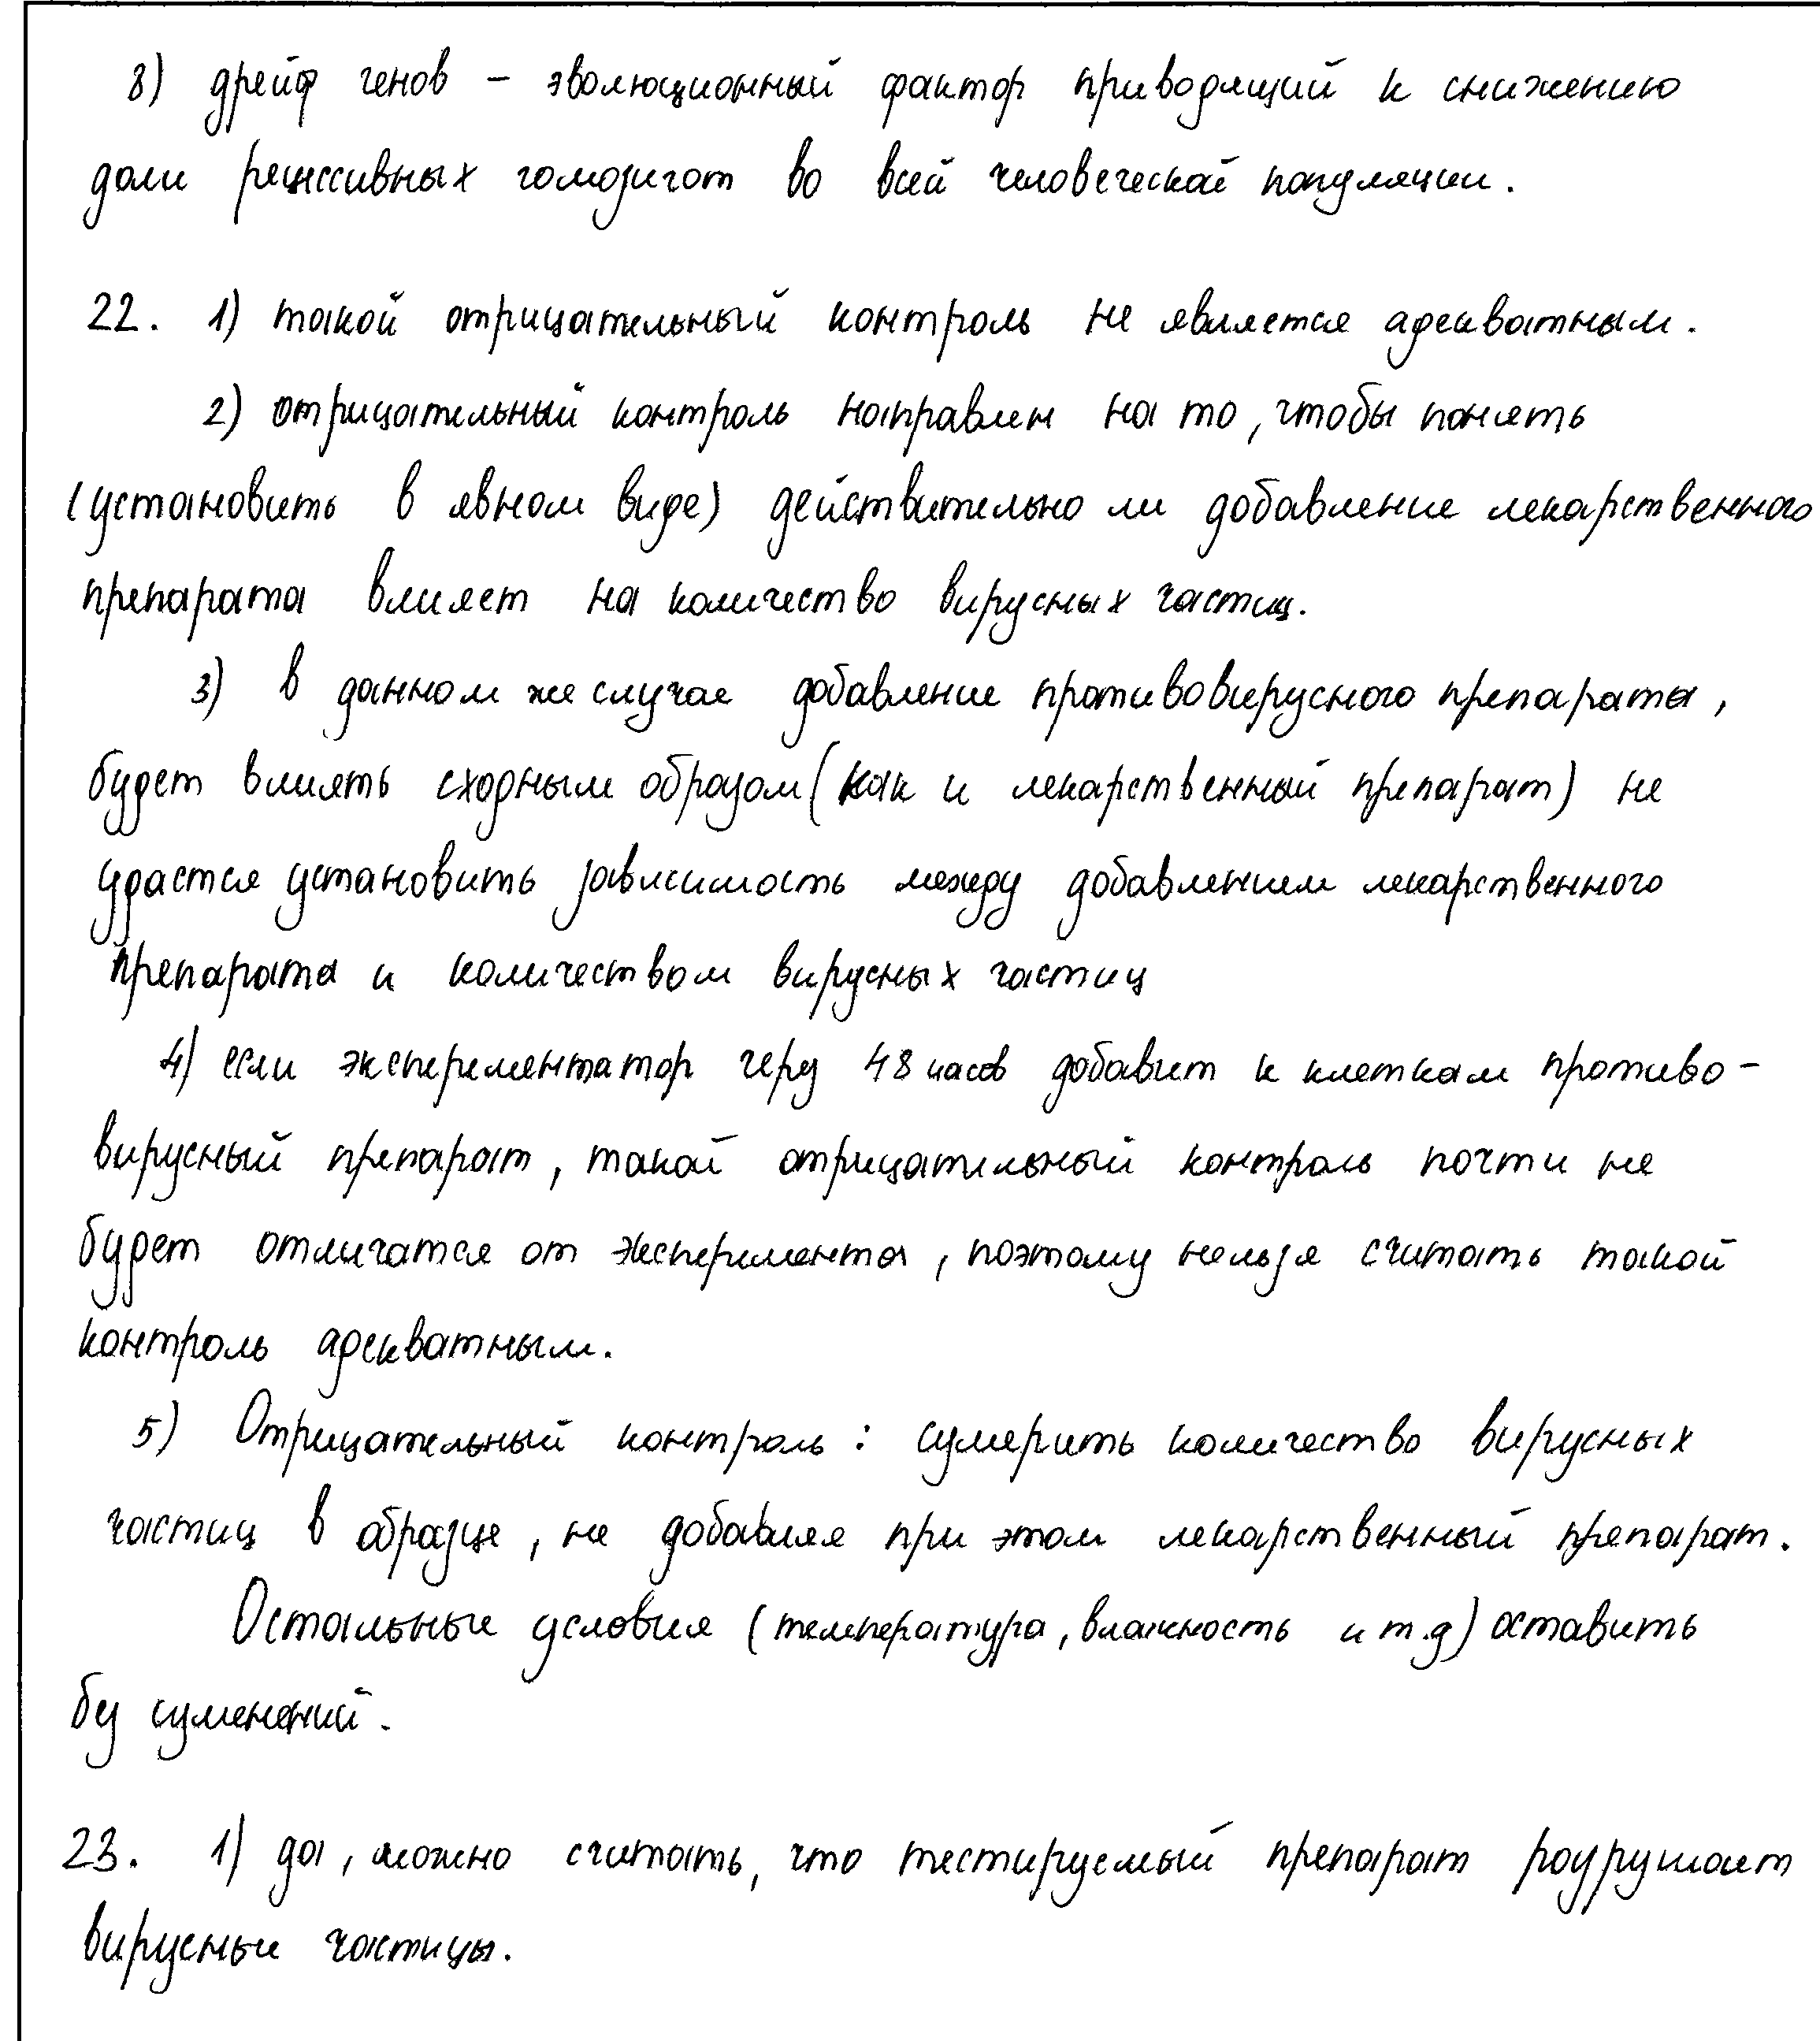 8) дрейф генов – эволюционный фактор приводящий к снижению
доли рецессивных гомозигот во всей человеческой популяции.
22. 1) такой отрицательный контроль не является адекватным.
2) отрицательный контроль направлен на то, чтобы понять
(установить в явном виде) действительно ли добавление лекарственного
препарата влияет на количество вирусных частиц.
3) в данном же случае добавление противовирусного препарата,
будет влиять сходным образом (как и лекарственный препарат) не
удастся установить зависимость между добавлением лекарственного
препарата и количеством вирусных частиц
4) если экспериментатор через 48 часов добавит к клеткам противо-
вирусный препарат, такой отрицательный контроль почти не
будет отличатся от эксперимента, поэтому нельзя считать такой
контроль адекватным.
5) Отрицательный контроль: измерить количество вирусных
частиц в образце, не добавляя при этом лекарственный препарат.
Остальные условия (температура, влажность и т.д) оставить
без изменений.
23. 1) да, можно считать, что тестируемый препарат разрушает
вирусные частицы.